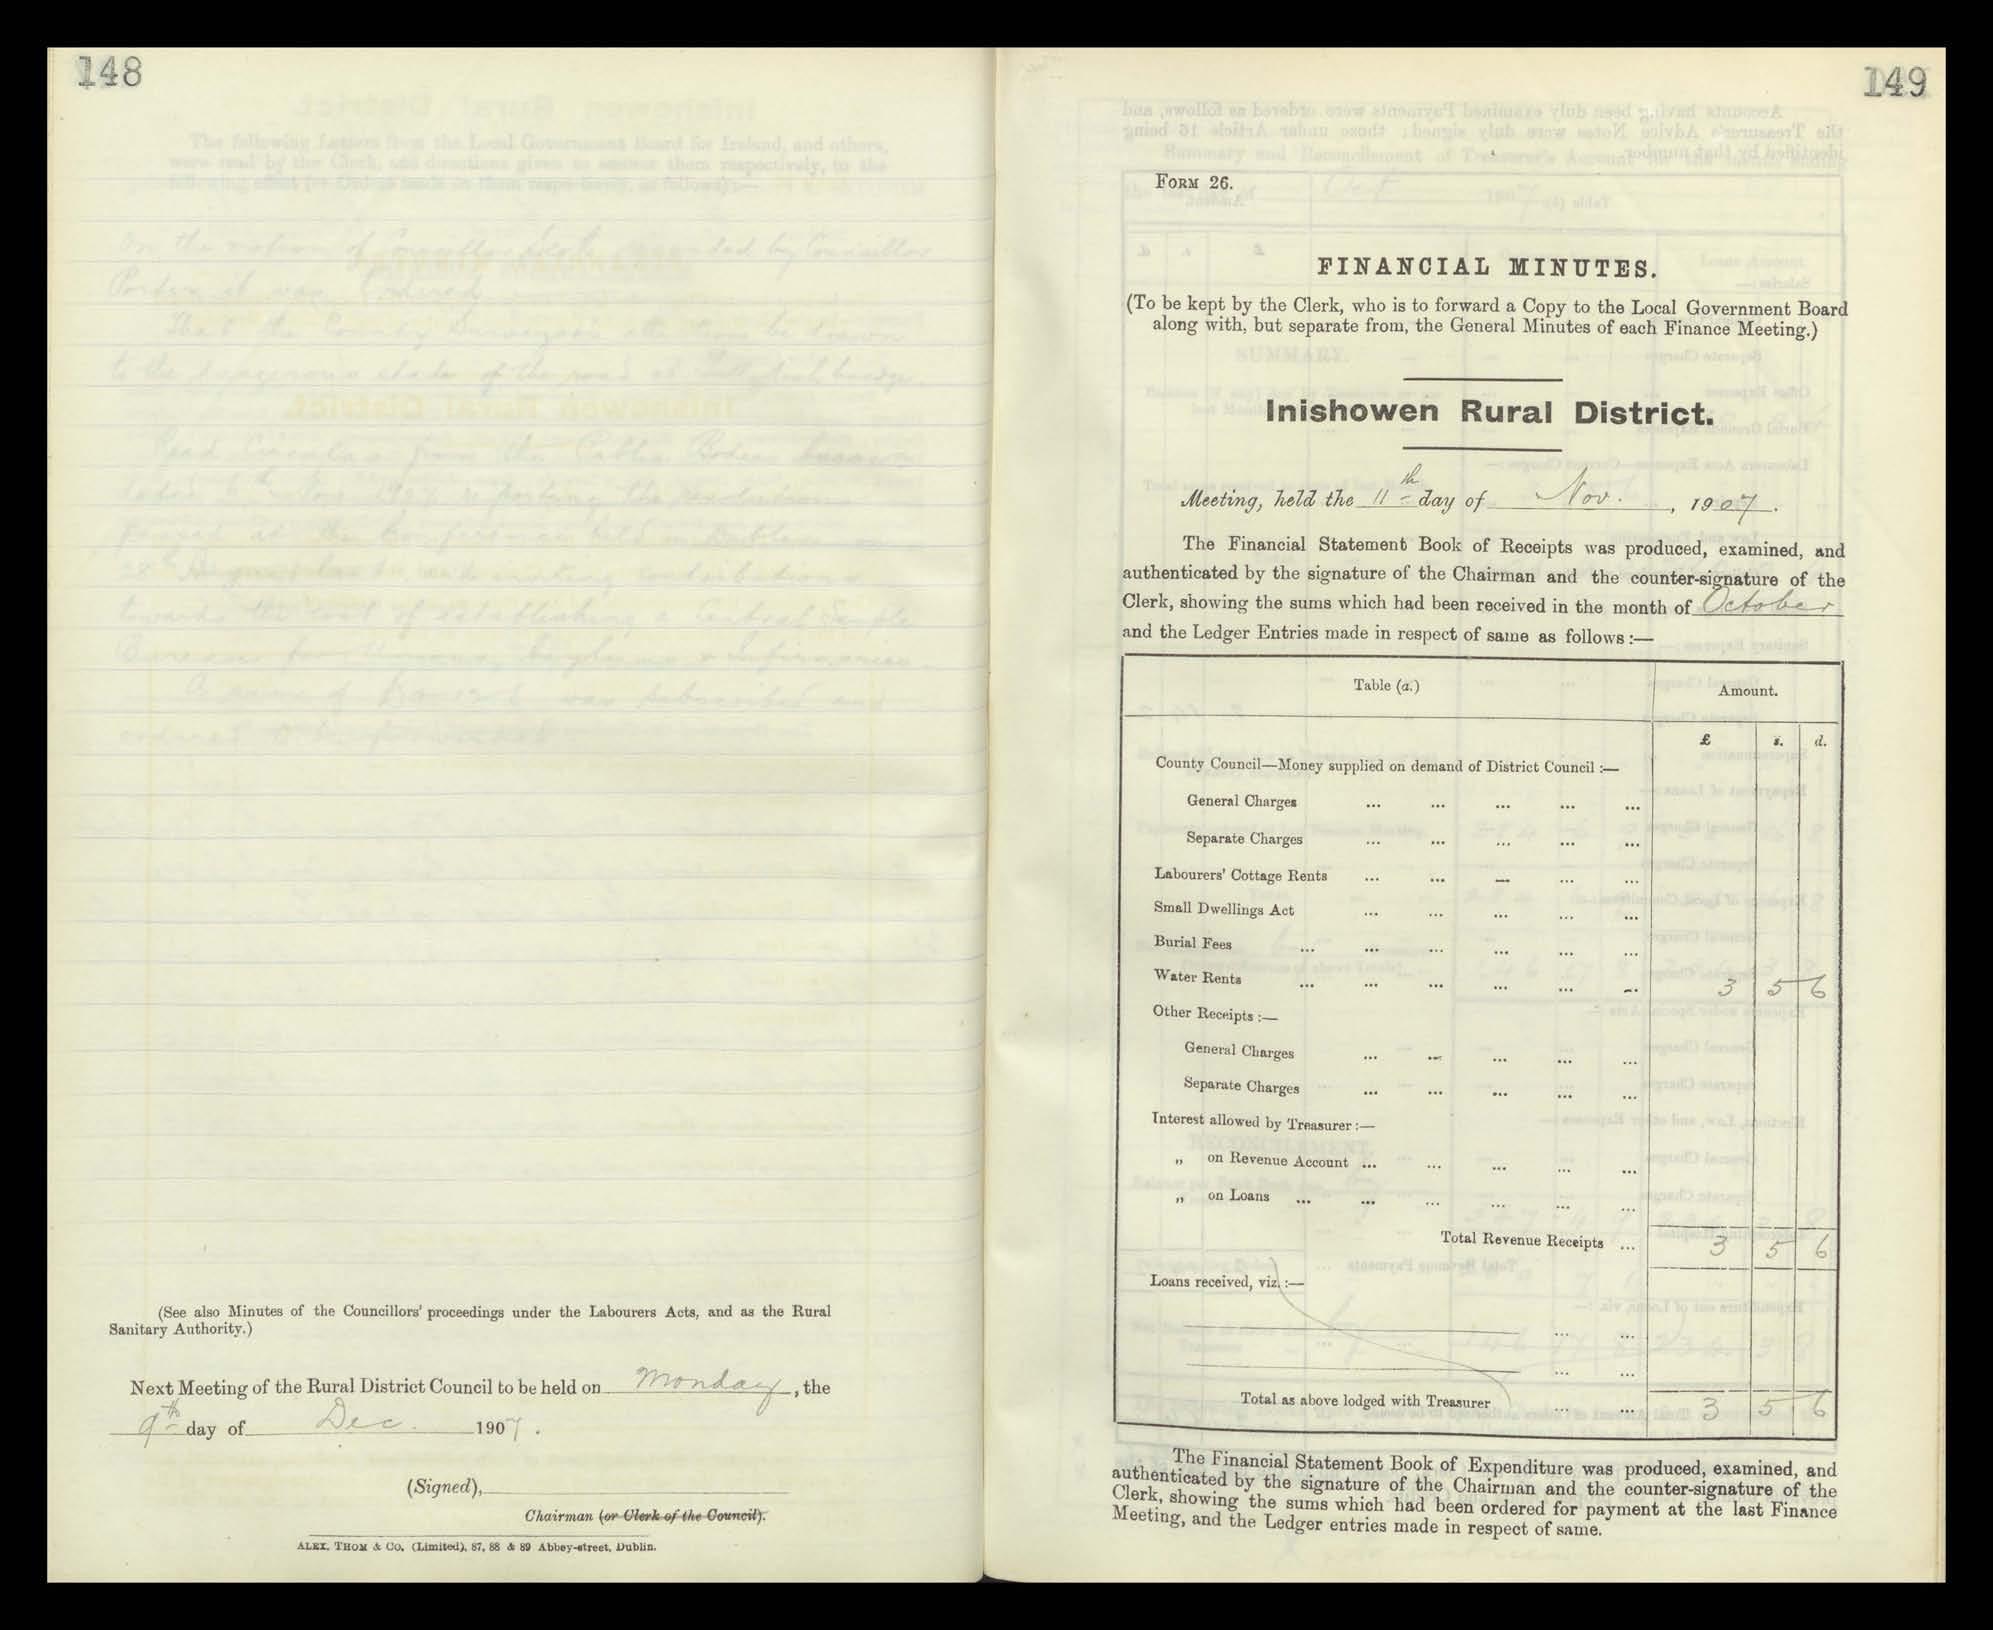 148
The following Letters from the Local Government Board for Ireland, and others,
were read by the Clerk, and directions given to answer them respectively, to the
following effect (or Orders made on them respectively, as follows):—
On the motion of Councillor seconded by Councillor
Porter it was Ordered
That the County Surveyor's attention be drawn
to the dangerous state of the road at bridge.
Read Circular from the Public Bodies
dated 6th Nov 1907 reporting the resolutions
passed at the Conference held in Dublin on
28th August last, & inviting contributions
towards the cost of establishing a Central Sample
Bureau for Unions, Asylums & Infirmaries.
A sum of was subscribed and
ordered to be forwarded
(See also Minutes of the Councillors' proceedings under the Labourers Acts, and as the Rural
Sanitary Authority.)
Next Meeting of the Rural District Council to be held on Monday, the
9th day of Dec. 1907.
(Signed),
Chairman (or Clerk of the Council).
ALEX. THOM & CO. (Limited), 87, 88 & 89 Abbey-street, Dublin.
149
FORM 26.
FINANCIAL MINUTES.
(To be kept by the Clerk, who is to forward a Copy to the Local Government Board
along with, but separate from, the General Minutes of each Finance Meeting.)
Inishowen Rural District.
Meeting, held the 11th day of Nov. , 1907.
The Financial Statement Book of Receipts was produced, examined, and
authenticated by the signature of the Chairman and the counter-signature of the
Clerk, showing the sums which had been received in the month of October
and the Ledger Entries made in respect of same as follows:—
Table (a.) Amount.
£ s. d.
County Council—Money supplied on demand of District Council:—
General Charges ... ... ... ... ...
Separate Charges ... ... ... ... ...
Labourers' Cottage Rents ... ... ... ... ...
Small Dwellings Act ... ... ... ... ...
Burial Fees ... ... ... ... ... ...
Water Rents ... ... ... ... ... ... 3 5 6
Other Receipts:—
General Charges ... ... ... ... ...
Separate Charges ... ... ... ... ...
Interest allowed by Treasurer:—
„ on Revenue Account ... ... ... ... ...
„ on Loans ... ... ... ... ... ...
Total Revenue Receipts ... 3 5 6
Loans received, viz.:—
... ...
... ...
Total as above lodged with Treasurer ... ... 3 5 6
The Financial Statement Book of Expenditure was produced, examined, and
authenticated by the signature of the Chairman and the counter-signature of the
Clerk, showing the sums which had been ordered for payment at the last Finance
Meeting, and the Ledger entries made in respect of same.